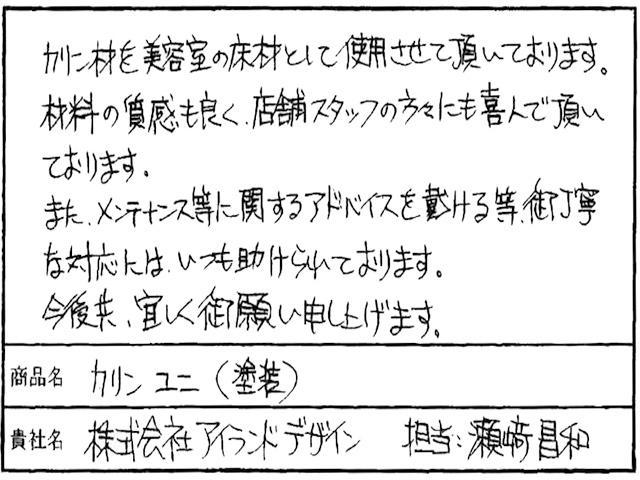 カリン材を美容室の床材として使用させて頂いております。
材料の質感も良く、店舗スタッフの方々にも喜んで頂い
ております。
また、メンテナンス等に関するアドバイスを戴ける等、御丁寧
な対応には、いつも助けられております。
今後共、宜しく御願い申し上げます。
商品名 カリン ユニ (塗装)
貴社名 株式会社アイランドデザイン 担当:瀬崎昌和